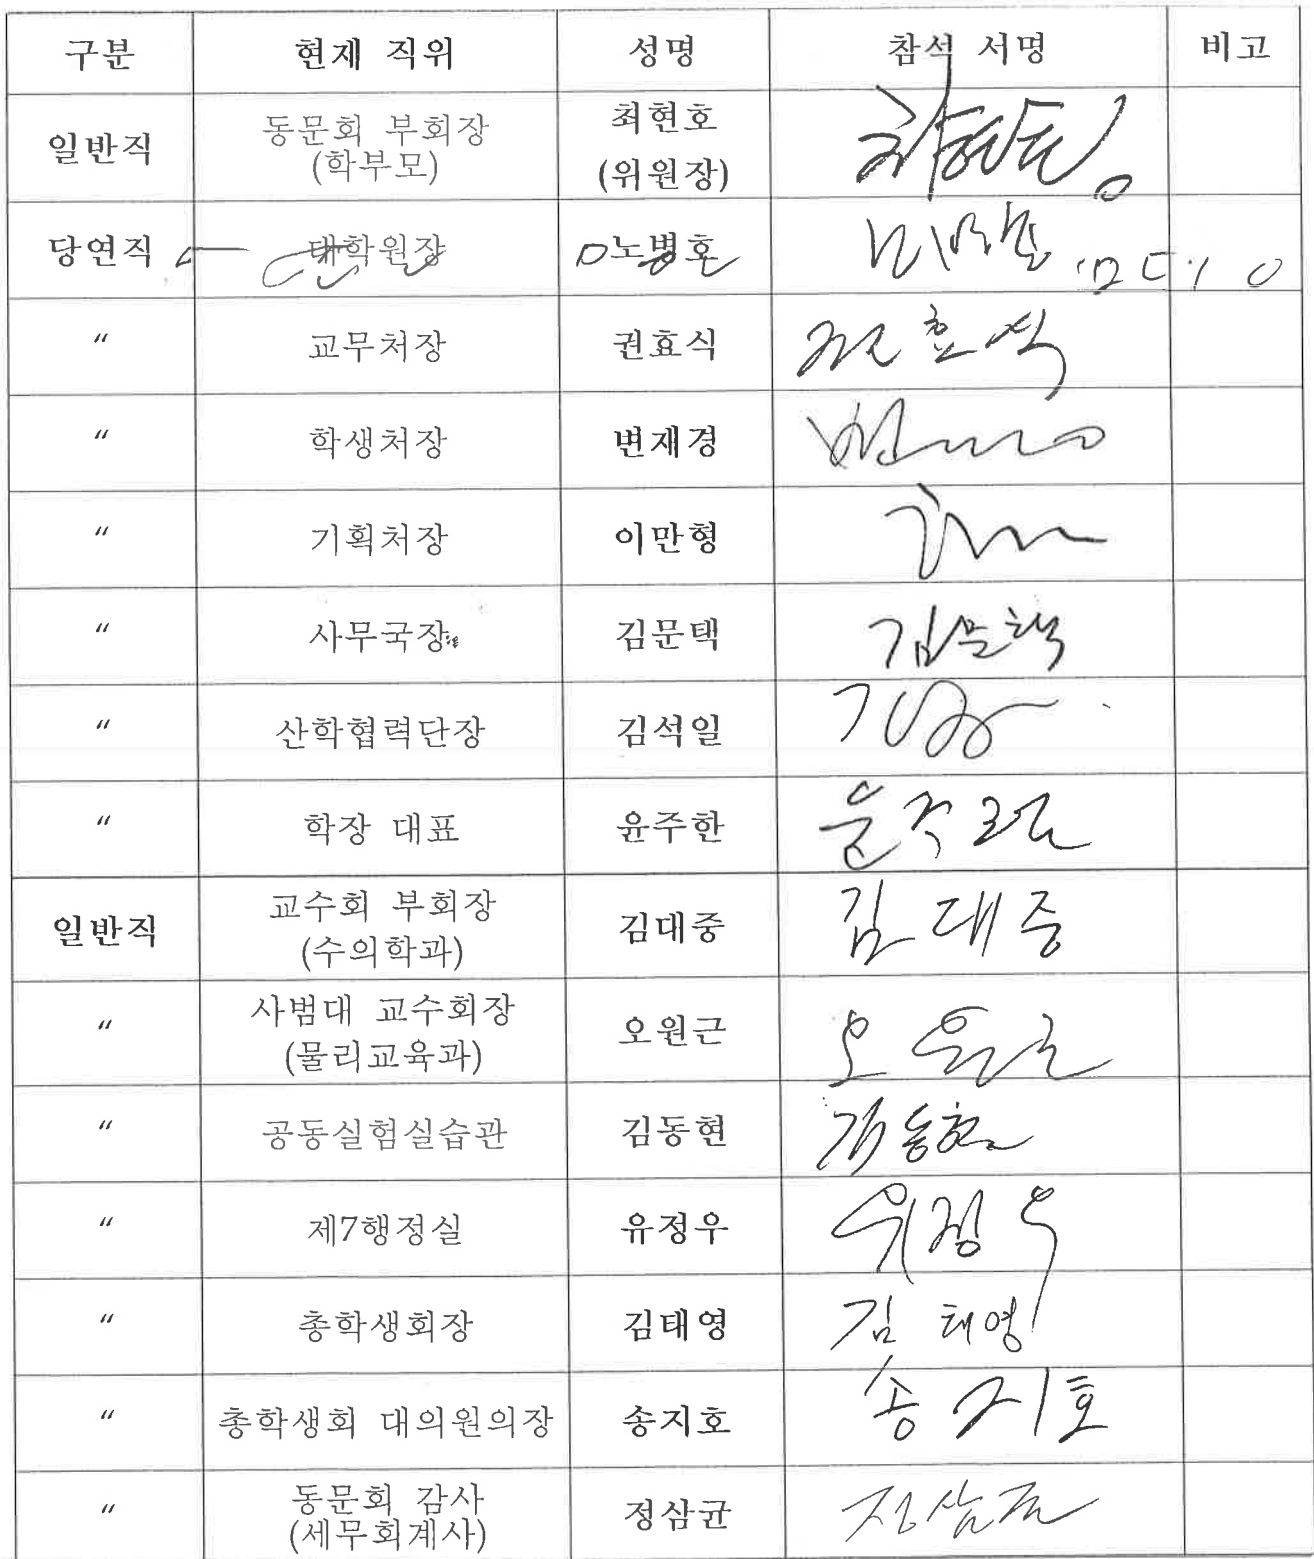 구분 현재 직위 성명 참석 서명 비고
일반직 동문회 부회장 (학부모) 최현호 (위원장) 최현호
당연직 대학원장 노병호
〃 교무처장 권효식 권효식
〃 학생처장 변재경
〃 기획처장 이만형
〃 사무국장 김문택 김문택
〃 산학협력단장 김석일
〃 학장 대표 윤주한
일반직 교수회 부회장 (수의학과) 김대중 김대중
〃 사범대 교수회장 (물리교육과) 오원근 오원근
〃 공동실험실습관 김동현 김동현
〃 제7행정실 유정우 유정우
〃 총학생회장 김태영 김태영
〃 총학생회 대의원의장 송지호 송지호
〃 동문회 감사 (세무회계사) 정삼균 정삼균